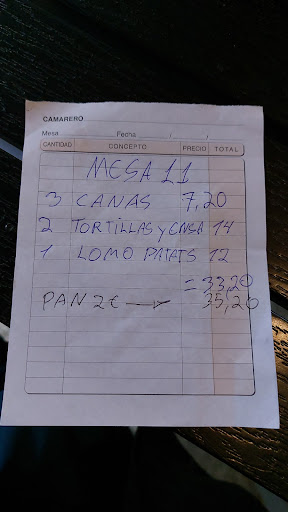 CAMARERO
Mesa Fecha / /
CANTIDAD CONCEPTO PRECIO TOTAL
MESA 11
3 CAÑAS 7,20
2 TORTILLAS y ENSA 14
1 LOMO PATATS 12
= 33,20
PAN 2€ → 35,20